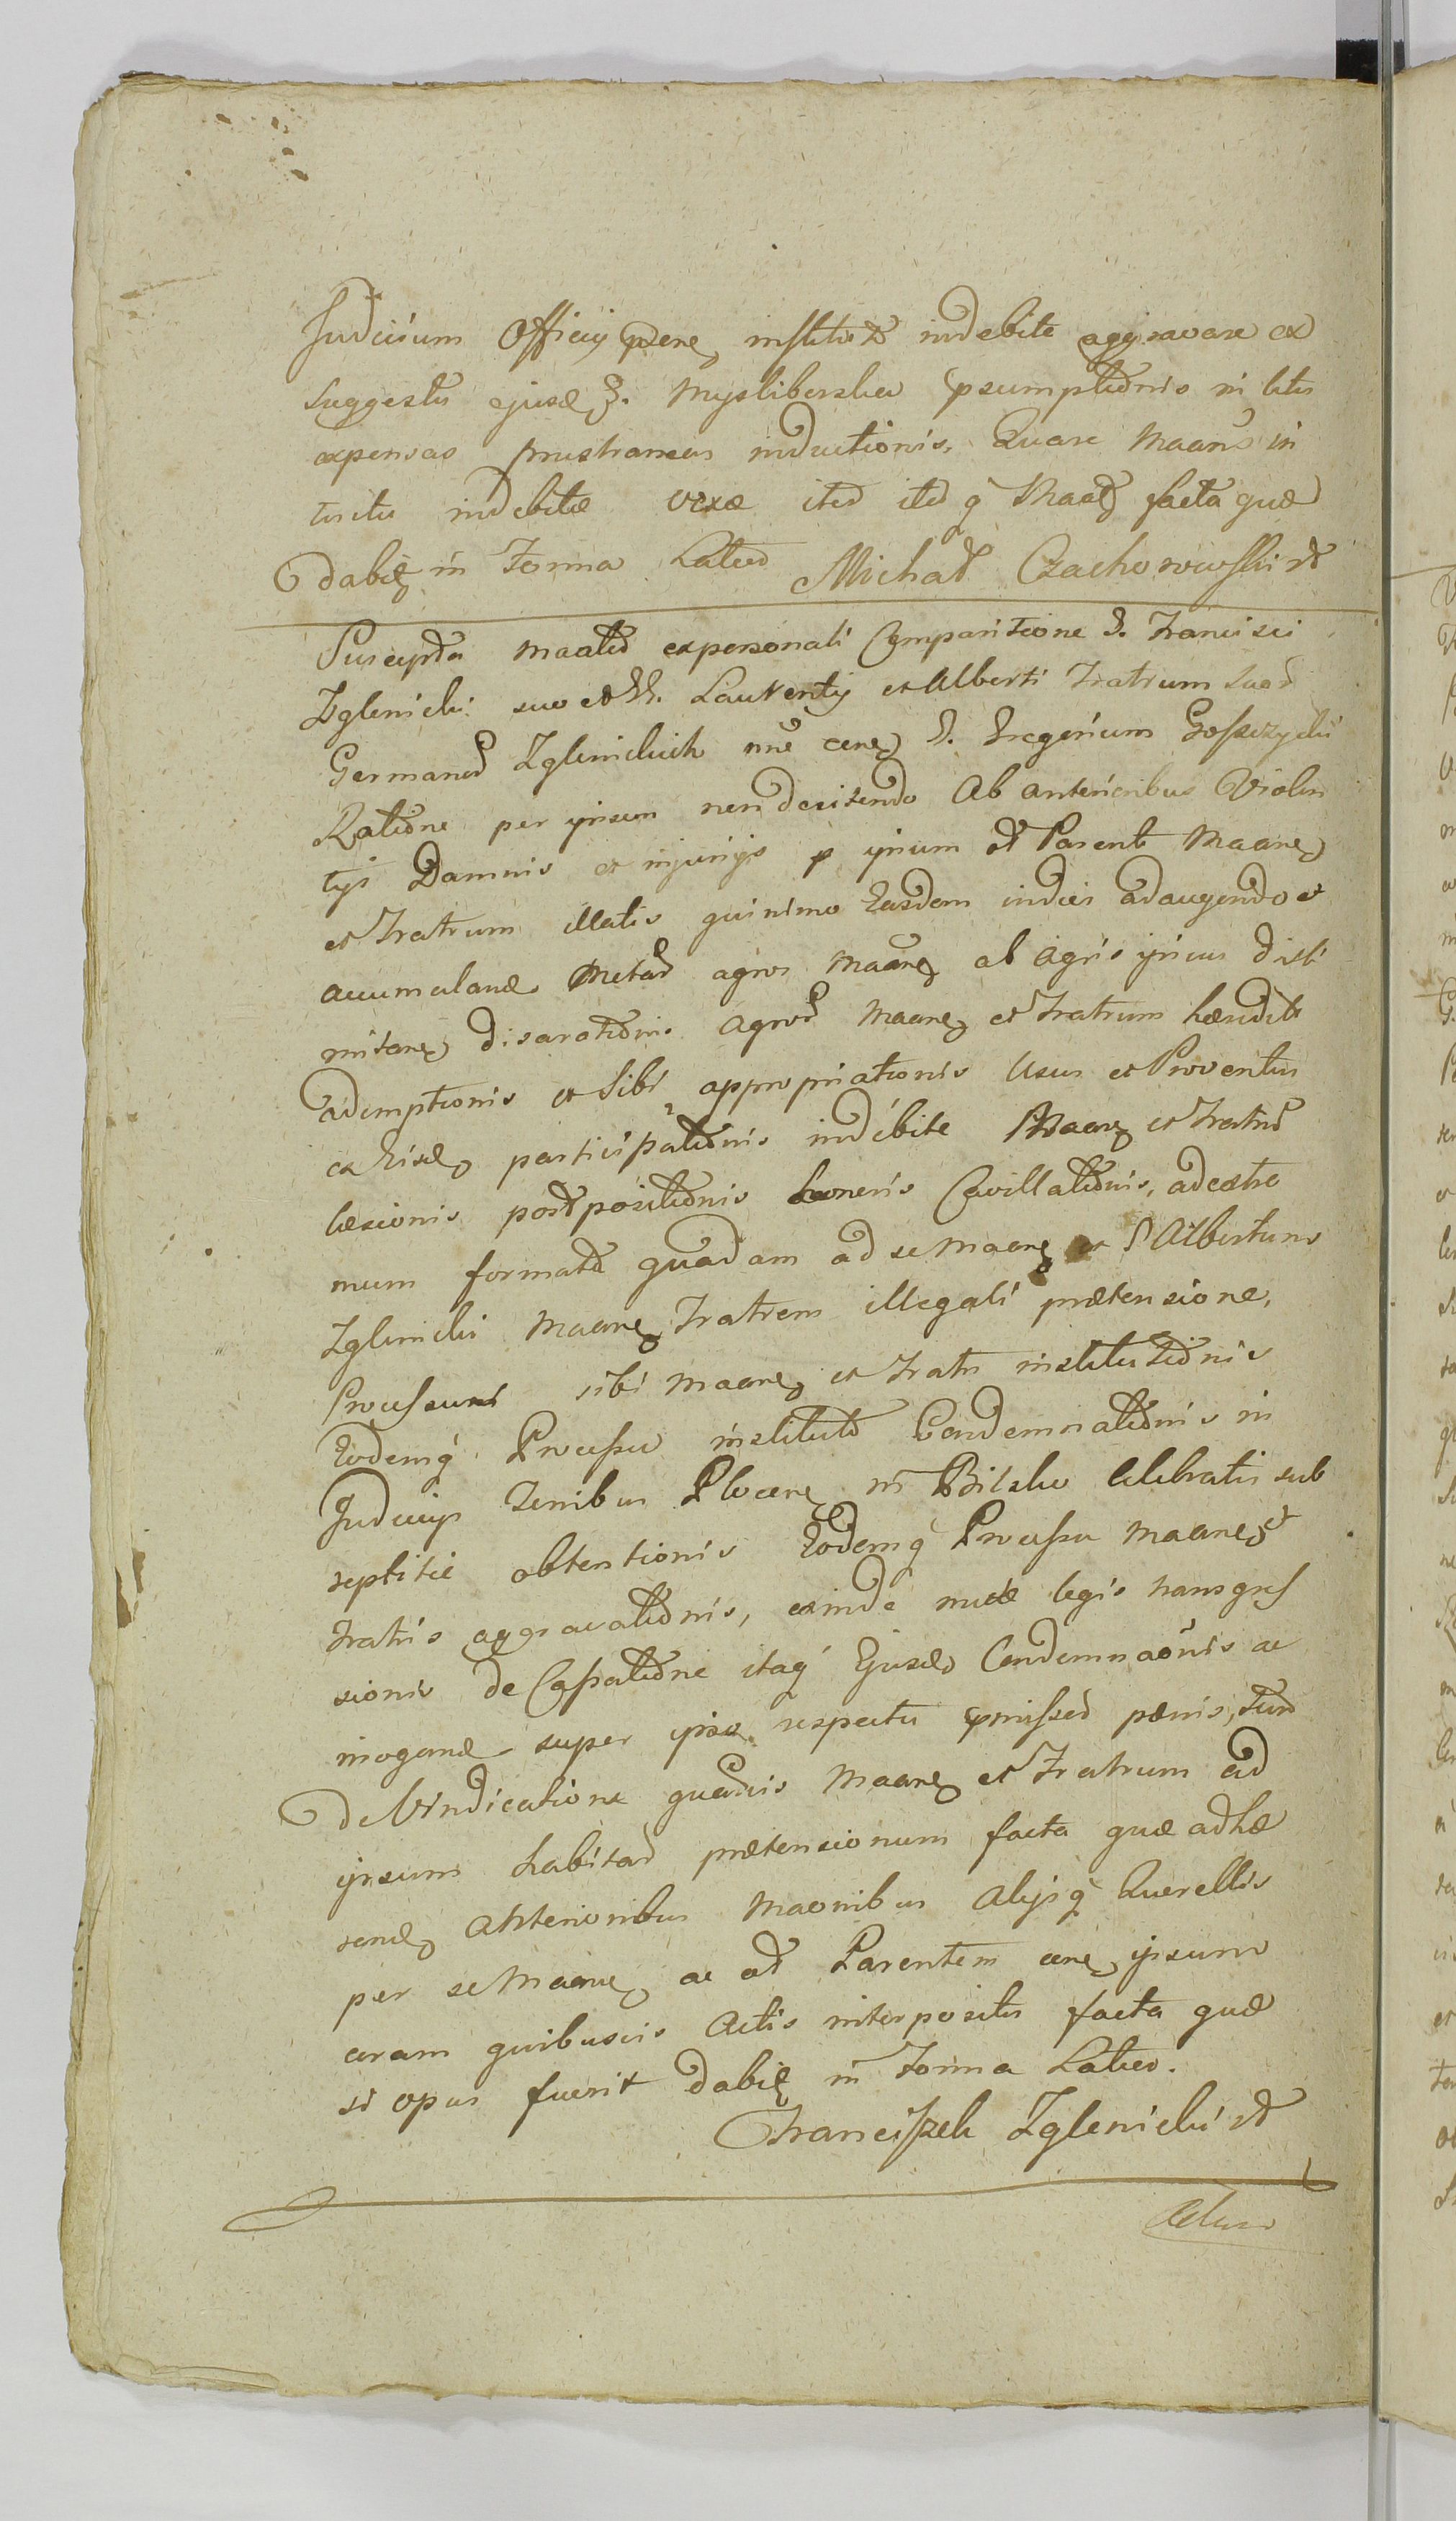 Judicium Officij pene institut indebite aggravare ex
suggestu ejusd G. Mysliborska psumptionis in litis
expensas frustraneas inductionis. Quare Maans in
tuitu indebitæ vexæ ited ited q Maatg facta quæ
dabit in Forma Lated Michał Czachorowski
Suscepta maated ex personali Comparitione G. Francisci
Zglenicki suo et GG. Laurentij et Alberti Fratrum suor
German Zglenickich nne cone G. Gregorium Gosczycki
Ratione per ipsum non desistendo Ab anterioribus Violen
tijs Damnis et injurijs p ipsum et Parent Maane
et Fratrum illatis quinimo Easdem indies adaugendo et
accumulane Metar agros Maane ab agris ipsius disti
mitane disaratiõnis agror Maane et Fratrum hæredit
ademptionis et Sibi appropriationis Usus et Proventus
ex Eisd participatiõnis indebite Maane et Fratru
læsionis postpositiõnis honeris Cavillatiõnis, ad extre
mum format quadam ad se Maane et G Albertum
Zglenicki Maane Fratrem illegali prætensione,
Processus sibi Maane et Fratri institutiõnis
Eodemq Processu institut Condemnatiõnis in
Judicijs Tenibus Plocene in Bielsko celebratis sub
reptitie obtentionis Eodemq Processu Maane et
Fratris aggravatiõnis, exinde legis transgres
sionis de Cassatiõne itaq Ejusd Condemnaõnis ac
irogand super ipso respectu pmissor pænis, tum
de Vindicatione quarvis Maane et Fratrum ad
ipsum habitar prætensionum facta quæ adhæ
rend Anterioribus Maonibus Alijsq Querellis
per se Maane ac et Parentem cone ipsum
coram quibusvis Actis interpositis facta quæ
si opus fuerit dabit in Forma Lateo.
Franciszek Zglenicki
Actum